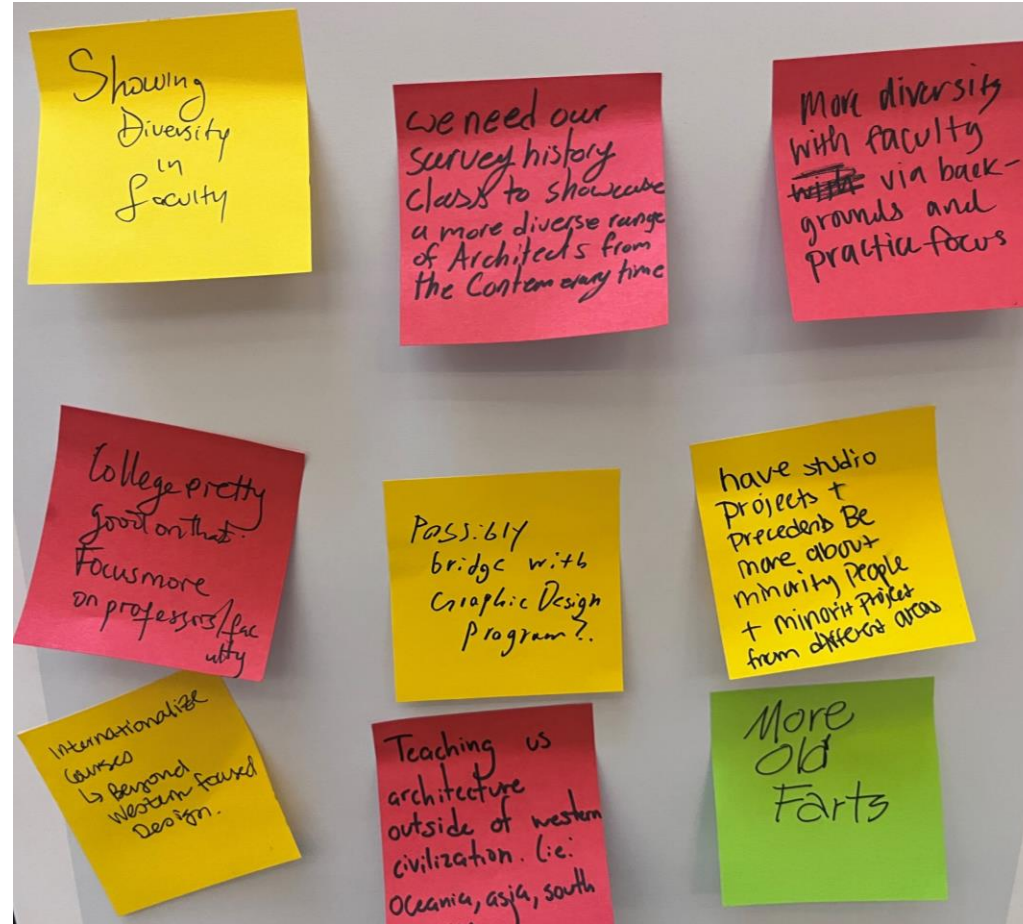 Showing
Diversity
in
faculty
we need our
survey history
class to showcase
a more diverse range
of Architects from
the Contemerary time
More diversity
with faculty
via back-
grounds and
practice focus
College pretty
good on that.
Focus more
on professors/fac
ulty
Possibly
bridge with
Graphic Design
Program?
have studio
projects +
precedents Be
more about
minority people
+ minorit project
from different areas
Internationalize
Courses
↳ Beyond
Western focused
Design.
Teaching us
architecture
outside of western
civilization. (ie:
Oceania, asia, south
More
Old
Farts